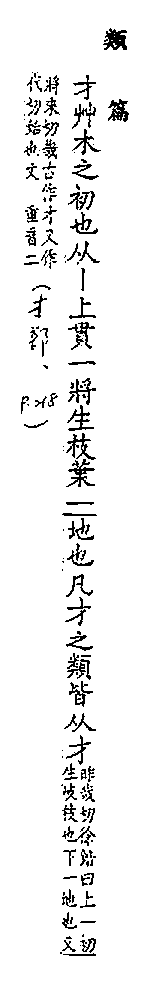 類篇
才艸木之初也从丨上貫一將生枝葉一地也凡才之類皆从才
昨哉切徐鍇曰上一初
生歧枝也下一地也又
將來切𢆻古作才又作
代切始也文 重音二
(才部、
p.218)